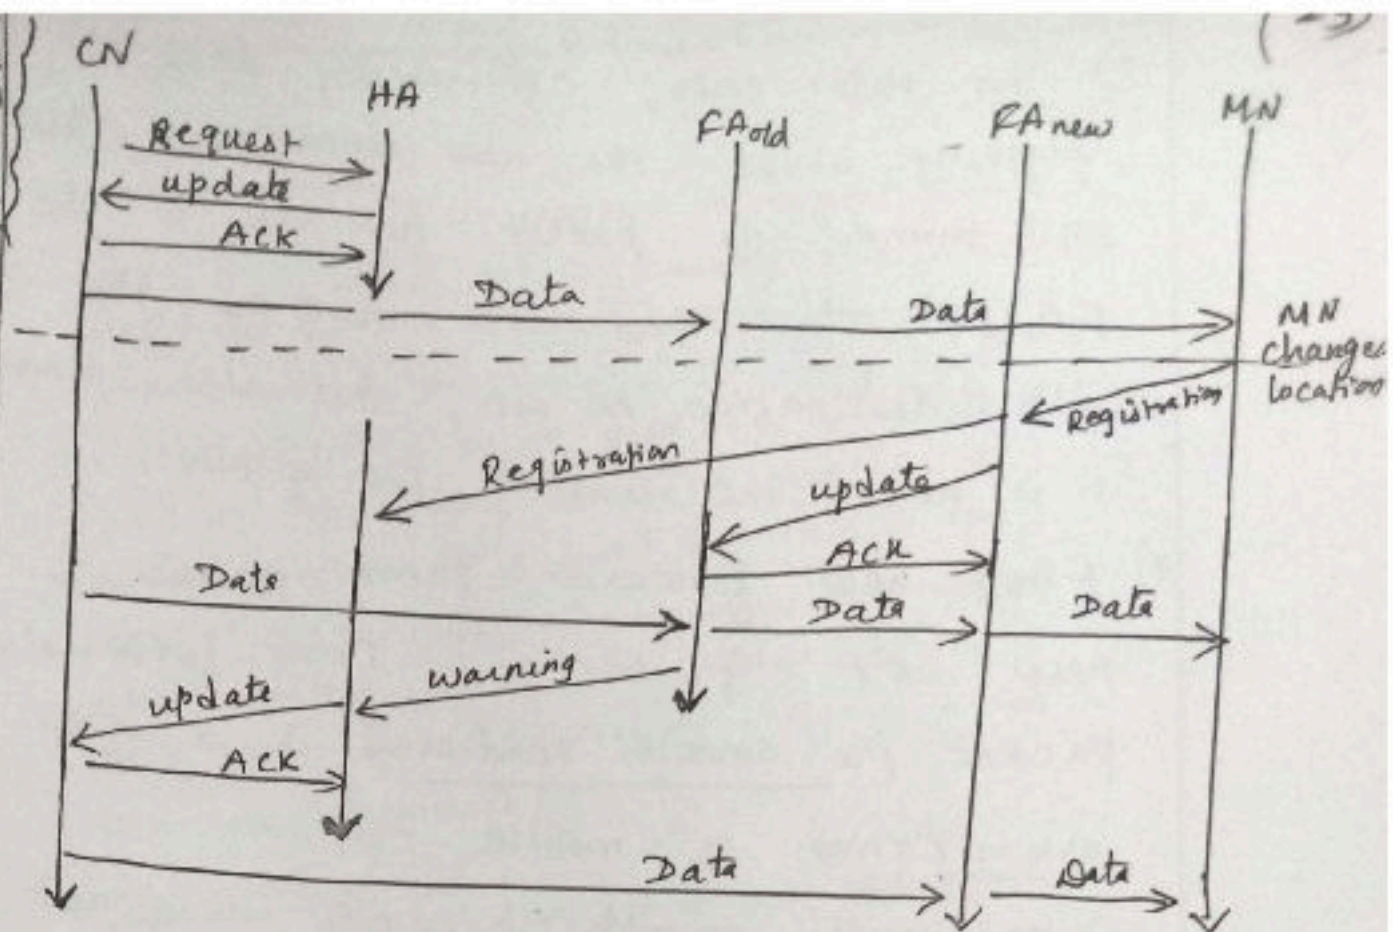 CN
HA
FAold
FAnew
MN
Request
update
ACK
Data
Data
MN
changes
location
Registration
Registration
update
ACK
Data
Data
Data
warning
update
ACK
Data
Data